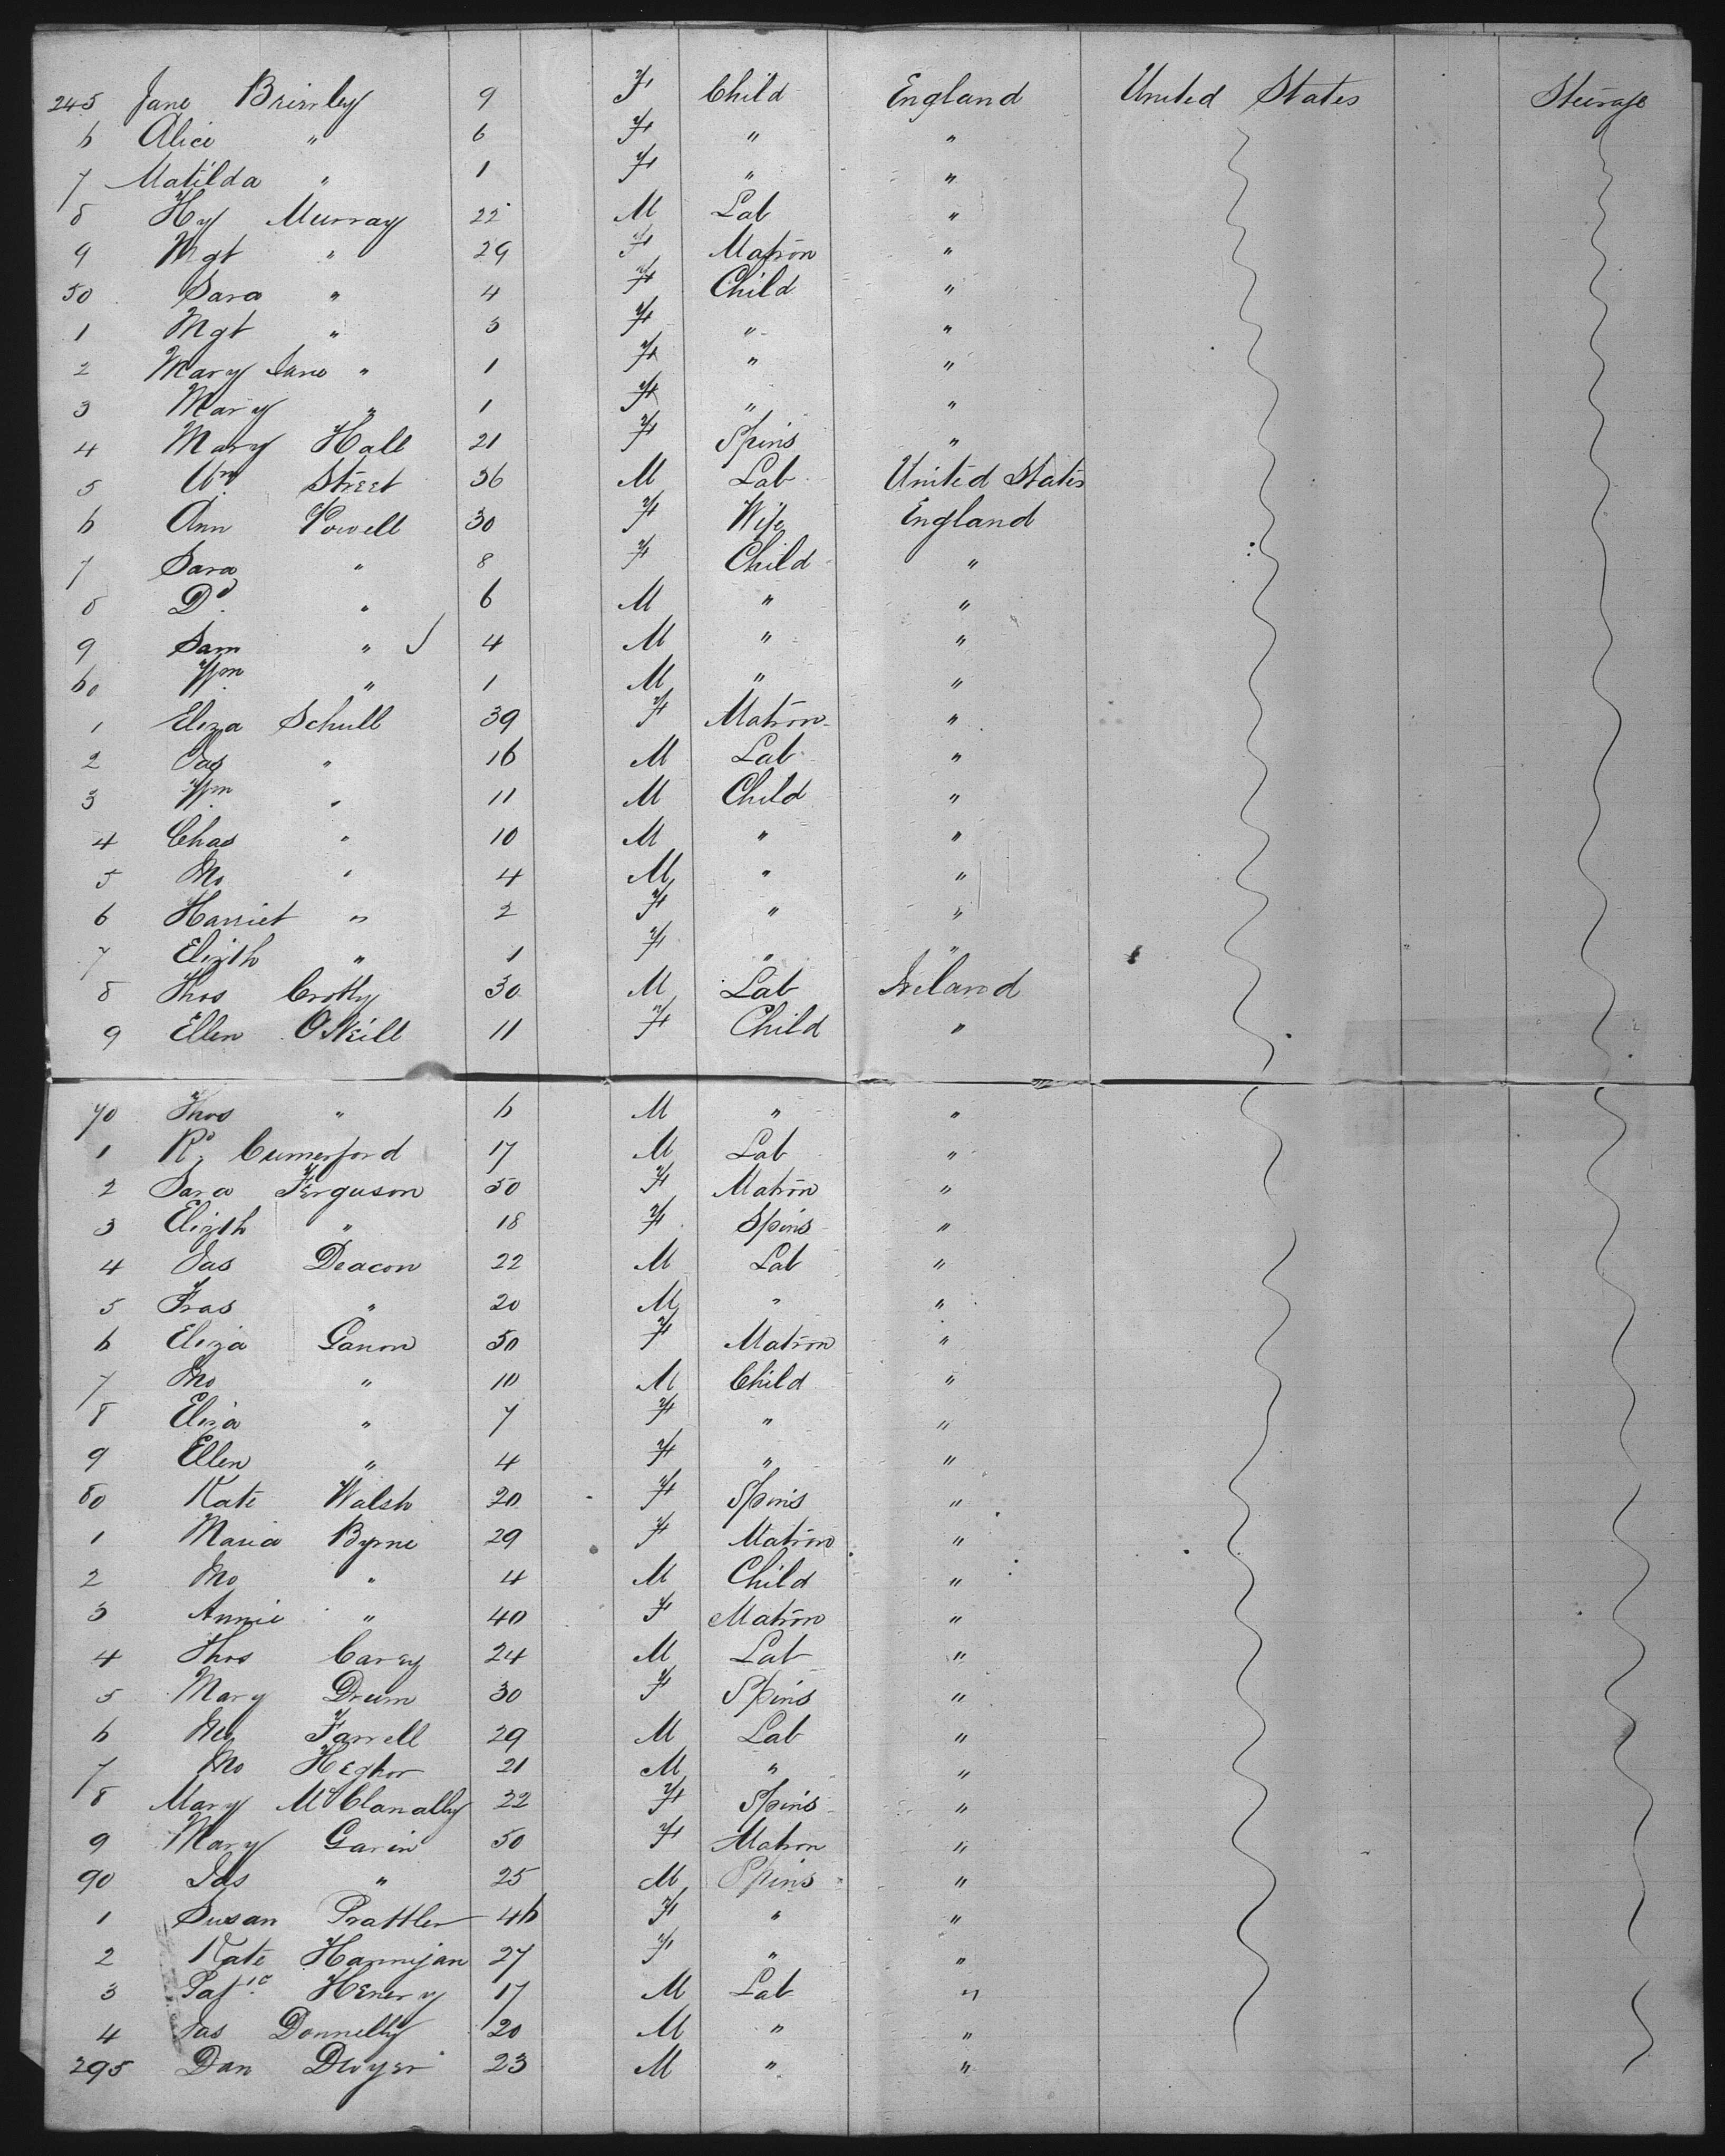 245 Jane Brimley 9 F Child England United States Steerage
6 Alice " 6 F " "
7 Matilda " 1 F " "
8 Hy Murray 22 M Lab "
9 Mgt " 29 F Matron "
50 Sara " 4 F Child "
1 Mgt " 3 F " "
2 Mary Jane " 1 F " "
3 Mary " 1 F " "
4 Mary Hall 21 F Spins "
5 Wm Street 36 M Lab United States
6 Ann Powell 30 F Wife England
7 Sara " 8 F Child "
8 Dd " 6 M " "
9 Sam " 4 M " "
60 Wm " 1 M " "
1 Eliza Schull 39 F Matron "
2 Jas " 16 M Lab "
3 Wm " 11 M Child "
4 Chas " 10 M " "
5 Jno " 4 M " "
6 Harriet " 2 F " "
7 Elizth " 1 F " "
8 Thos Crotty 30 M Lab Ireland
9 Ellen O'Neill 11 F Child "
70 Thos " 6 M " "
1 Rd Cumerford 17 M Lab "
2 Sara Ferguson 50 F Matron "
3 Elizth " 18 F Spins "
4 Jas Deacon 22 M Lab "
5 Fras " 20 M " "
6 Eliza Ganon 30 F Matron "
7 Jno " 10 M Child "
8 Eliza " 7 F " "
9 Ellen " 4 F " "
80 Kate Walsh 20 F Spins "
1 Maria Byrne 29 F Matron "
2 Jno " 4 M Child "
3 Annie " 40 F Matron "
4 Thos Carey 24 M Lab "
5 Mary Drum 30 F Spins "
6 Farrell 29 M Lab "
7 Jno 21 M " "
8 Mary McClanally 22 F Spins "
9 Mary Garin 50 F Matron "
90 Jas " 25 M Spins "
1 Susan Prattler 46 F " "
2 Kate Hannijan 27 F " "
3 Patk Henery 17 M Lab "
4 Jas Donnelly 20 M " "
295 Dan Dwyer 23 M " "